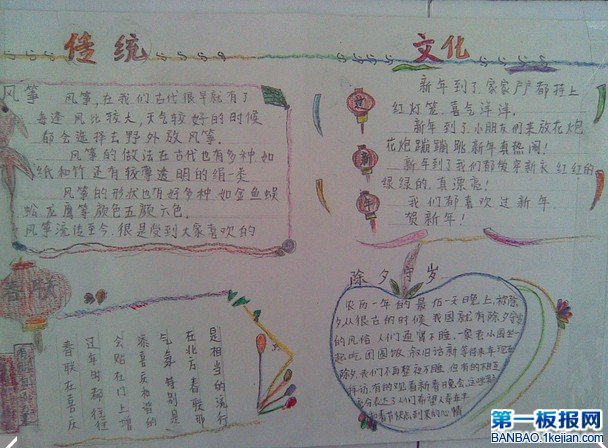 传统
文化
风筝
风筝,在我们古代很早就有了
每逢风比较大,天气较好的时候
都会选择去野外放风筝.
风筝的做法在古代也有多种如
纸和竹还有较薄透明的绢一类
风筝的形状也有好多种如金鱼蜈
蚣龙鹰等颜色五颜六色.
风筝流传至今.很是受到大家喜欢的
过新年
新年到了家家户户都持上
红灯笼.喜气洋洋.
新年到了小朋友们来放花炮
花炮蹦蹦跳新年真热闹!
新年到了我们都爱穿新衣红红的
绿绿的.真漂亮!
我们都喜欢过新年
贺新年!
春联
春联在喜庆
过年时都往往
会贴在门上增
添喜庆相当的
气氛特别是
在北方春联那
是相当的流行
除夕守岁
农历一年的最后一天晚上,被称除
夕从很古的时候我国就有除夕守岁
的风俗人们通宵不睡.一家老小围坐一
起吃团圆饭叙旧话新等待来年现在
除夕人们不再整夜不睡但有的相互
拜访,有的观看新春晚会,这些
第一板报网
BANBAO.1kejian.com